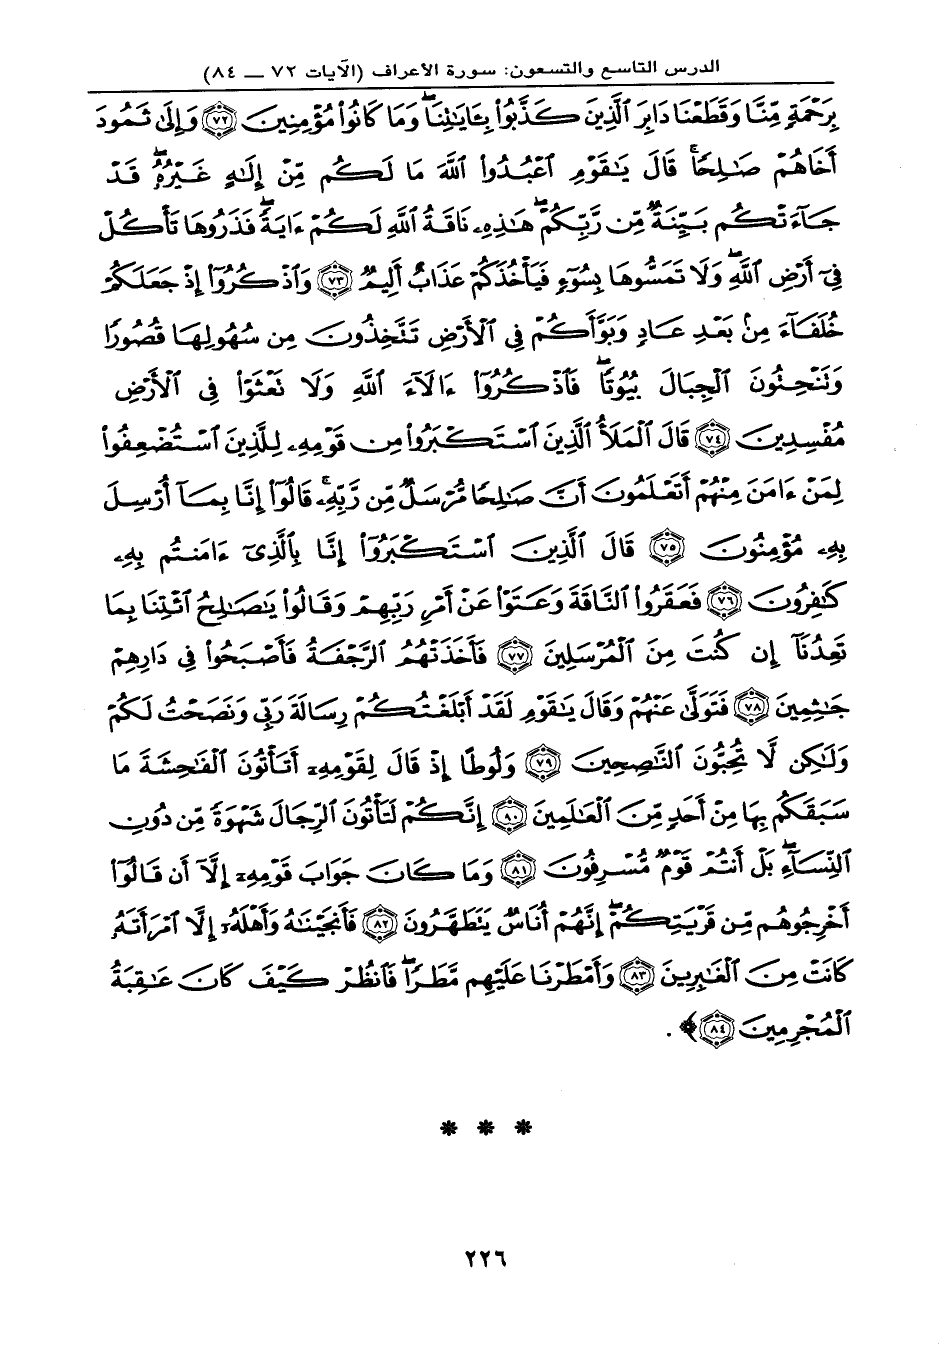 الدرس التاسع والتسعون: سورة الأعراف (الآيات ٧٢ ــ ٨٤)
بِرَحْمَةٍ مِّنَّا وَقَطَعْنَا دَابِرَ ٱلَّذِينَ كَذَّبُوا۟ بِـَٔايَٰتِنَا ۖ وَمَا كَانُوا۟ مُؤْمِنِينَ ﴿٧٢﴾ وَإِلَىٰ ثَمُودَ
أَخَاهُمْ صَٰلِحًا ۗ قَالَ يَٰقَوْمِ ٱعْبُدُوا۟ ٱللَّهَ مَا لَكُم مِّنْ إِلَٰهٍ غَيْرُهُۥ ۖ قَدْ
جَآءَتْكُم بَيِّنَةٌ مِّن رَّبِّكُمْ ۖ هَٰذِهِۦ نَاقَةُ ٱللَّهِ لَكُمْ ءَايَةً ۖ فَذَرُوهَا تَأْكُلْ
فِىٓ أَرْضِ ٱللَّهِ ۖ وَلَا تَمَسُّوهَا بِسُوٓءٍ فَيَأْخُذَكُمْ عَذَابٌ أَلِيمٌ ﴿٧٣﴾ وَٱذْكُرُوٓا۟ إِذْ جَعَلَكُمْ
خُلَفَآءَ مِنۢ بَعْدِ عَادٍ وَبَوَّأَكُمْ فِى ٱلْأَرْضِ تَتَّخِذُونَ مِن سُهُولِهَا قُصُورًا
وَتَنْحِتُونَ ٱلْجِبَالَ بُيُوتًا ۖ فَٱذْكُرُوٓا۟ ءَالَآءَ ٱللَّهِ وَلَا تَعْثَوْا۟ فِى ٱلْأَرْضِ
مُفْسِدِينَ ﴿٧٤﴾ قَالَ ٱلْمَلَأُ ٱلَّذِينَ ٱسْتَكْبَرُوا۟ مِن قَوْمِهِۦ لِلَّذِينَ ٱسْتُضْعِفُوا۟
لِمَنْ ءَامَنَ مِنْهُمْ أَتَعْلَمُونَ أَنَّ صَٰلِحًا مُّرْسَلٌ مِّن رَّبِّهِۦ ۚ قَالُوٓا۟ إِنَّا بِمَآ أُرْسِلَ
بِهِۦ مُؤْمِنُونَ ﴿٧٥﴾ قَالَ ٱلَّذِينَ ٱسْتَكْبَرُوٓا۟ إِنَّا بِٱلَّذِىٓ ءَامَنتُم بِهِۦ
كَٰفِرُونَ ﴿٧٦﴾ فَعَقَرُوا۟ ٱلنَّاقَةَ وَعَتَوْا۟ عَنْ أَمْرِ رَبِّهِمْ وَقَالُوا۟ يَٰصَٰلِحُ ٱئْتِنَا بِمَا
تَعِدُنَآ إِن كُنتَ مِنَ ٱلْمُرْسَلِينَ ﴿٧٧﴾ فَأَخَذَتْهُمُ ٱلرَّجْفَةُ فَأَصْبَحُوا۟ فِى دَارِهِمْ
جَٰثِمِينَ ﴿٧٨﴾ فَتَوَلَّىٰ عَنْهُمْ وَقَالَ يَٰقَوْمِ لَقَدْ أَبْلَغْتُكُمْ رِسَالَةَ رَبِّى وَنَصَحْتُ لَكُمْ
وَلَٰكِن لَّا تُحِبُّونَ ٱلنَّٰصِحِينَ ﴿٧٩﴾ وَلُوطًا إِذْ قَالَ لِقَوْمِهِۦٓ أَتَأْتُونَ ٱلْفَٰحِشَةَ مَا
سَبَقَكُم بِهَا مِنْ أَحَدٍ مِّنَ ٱلْعَٰلَمِينَ ﴿٨٠﴾ إِنَّكُمْ لَتَأْتُونَ ٱلرِّجَالَ شَهْوَةً مِّن دُونِ
ٱلنِّسَآءِ ۚ بَلْ أَنتُمْ قَوْمٌ مُّسْرِفُونَ ﴿٨١﴾ وَمَا كَانَ جَوَابَ قَوْمِهِۦٓ إِلَّآ أَن قَالُوٓا۟
أَخْرِجُوهُم مِّن قَرْيَتِكُمْ ۖ إِنَّهُمْ أُنَاسٌ يَتَطَهَّرُونَ ﴿٨٢﴾ فَأَنجَيْنَٰهُ وَأَهْلَهُۥٓ إِلَّا ٱمْرَأَتَهُۥ
كَانَتْ مِنَ ٱلْغَٰبِرِينَ ﴿٨٣﴾ وَأَمْطَرْنَا عَلَيْهِم مَّطَرًا ۖ فَٱنظُرْ كَيْفَ كَانَ عَٰقِبَةُ
ٱلْمُجْرِمِينَ ﴿٨٤﴾﴾ .
* * *
٢٢٦